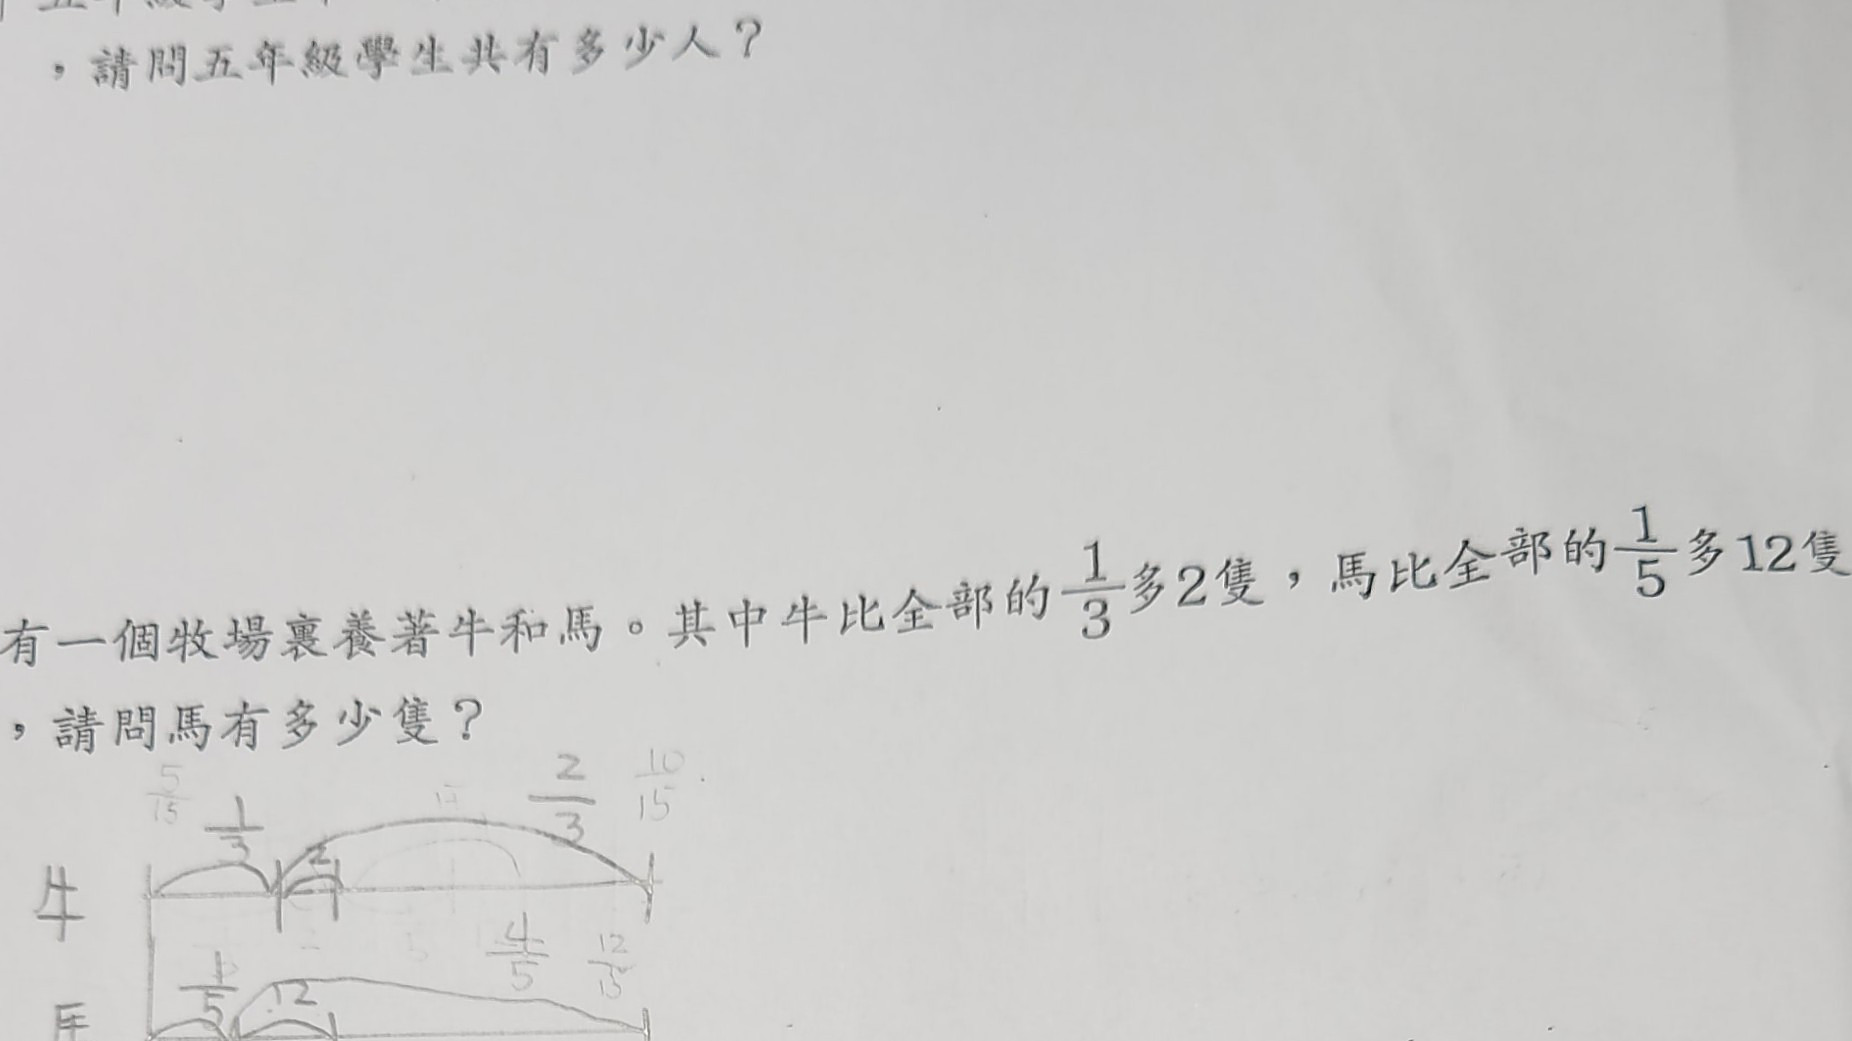 ，請問五年級學生共有多少人？
有一個牧場裏養著牛和馬。其中牛比全部的1/3多2隻，馬比全部的1/5多12隻
，請問馬有多少隻？
5/15 1/3 2 2/3 10/15
牛
1/5 12 4/5 12/15